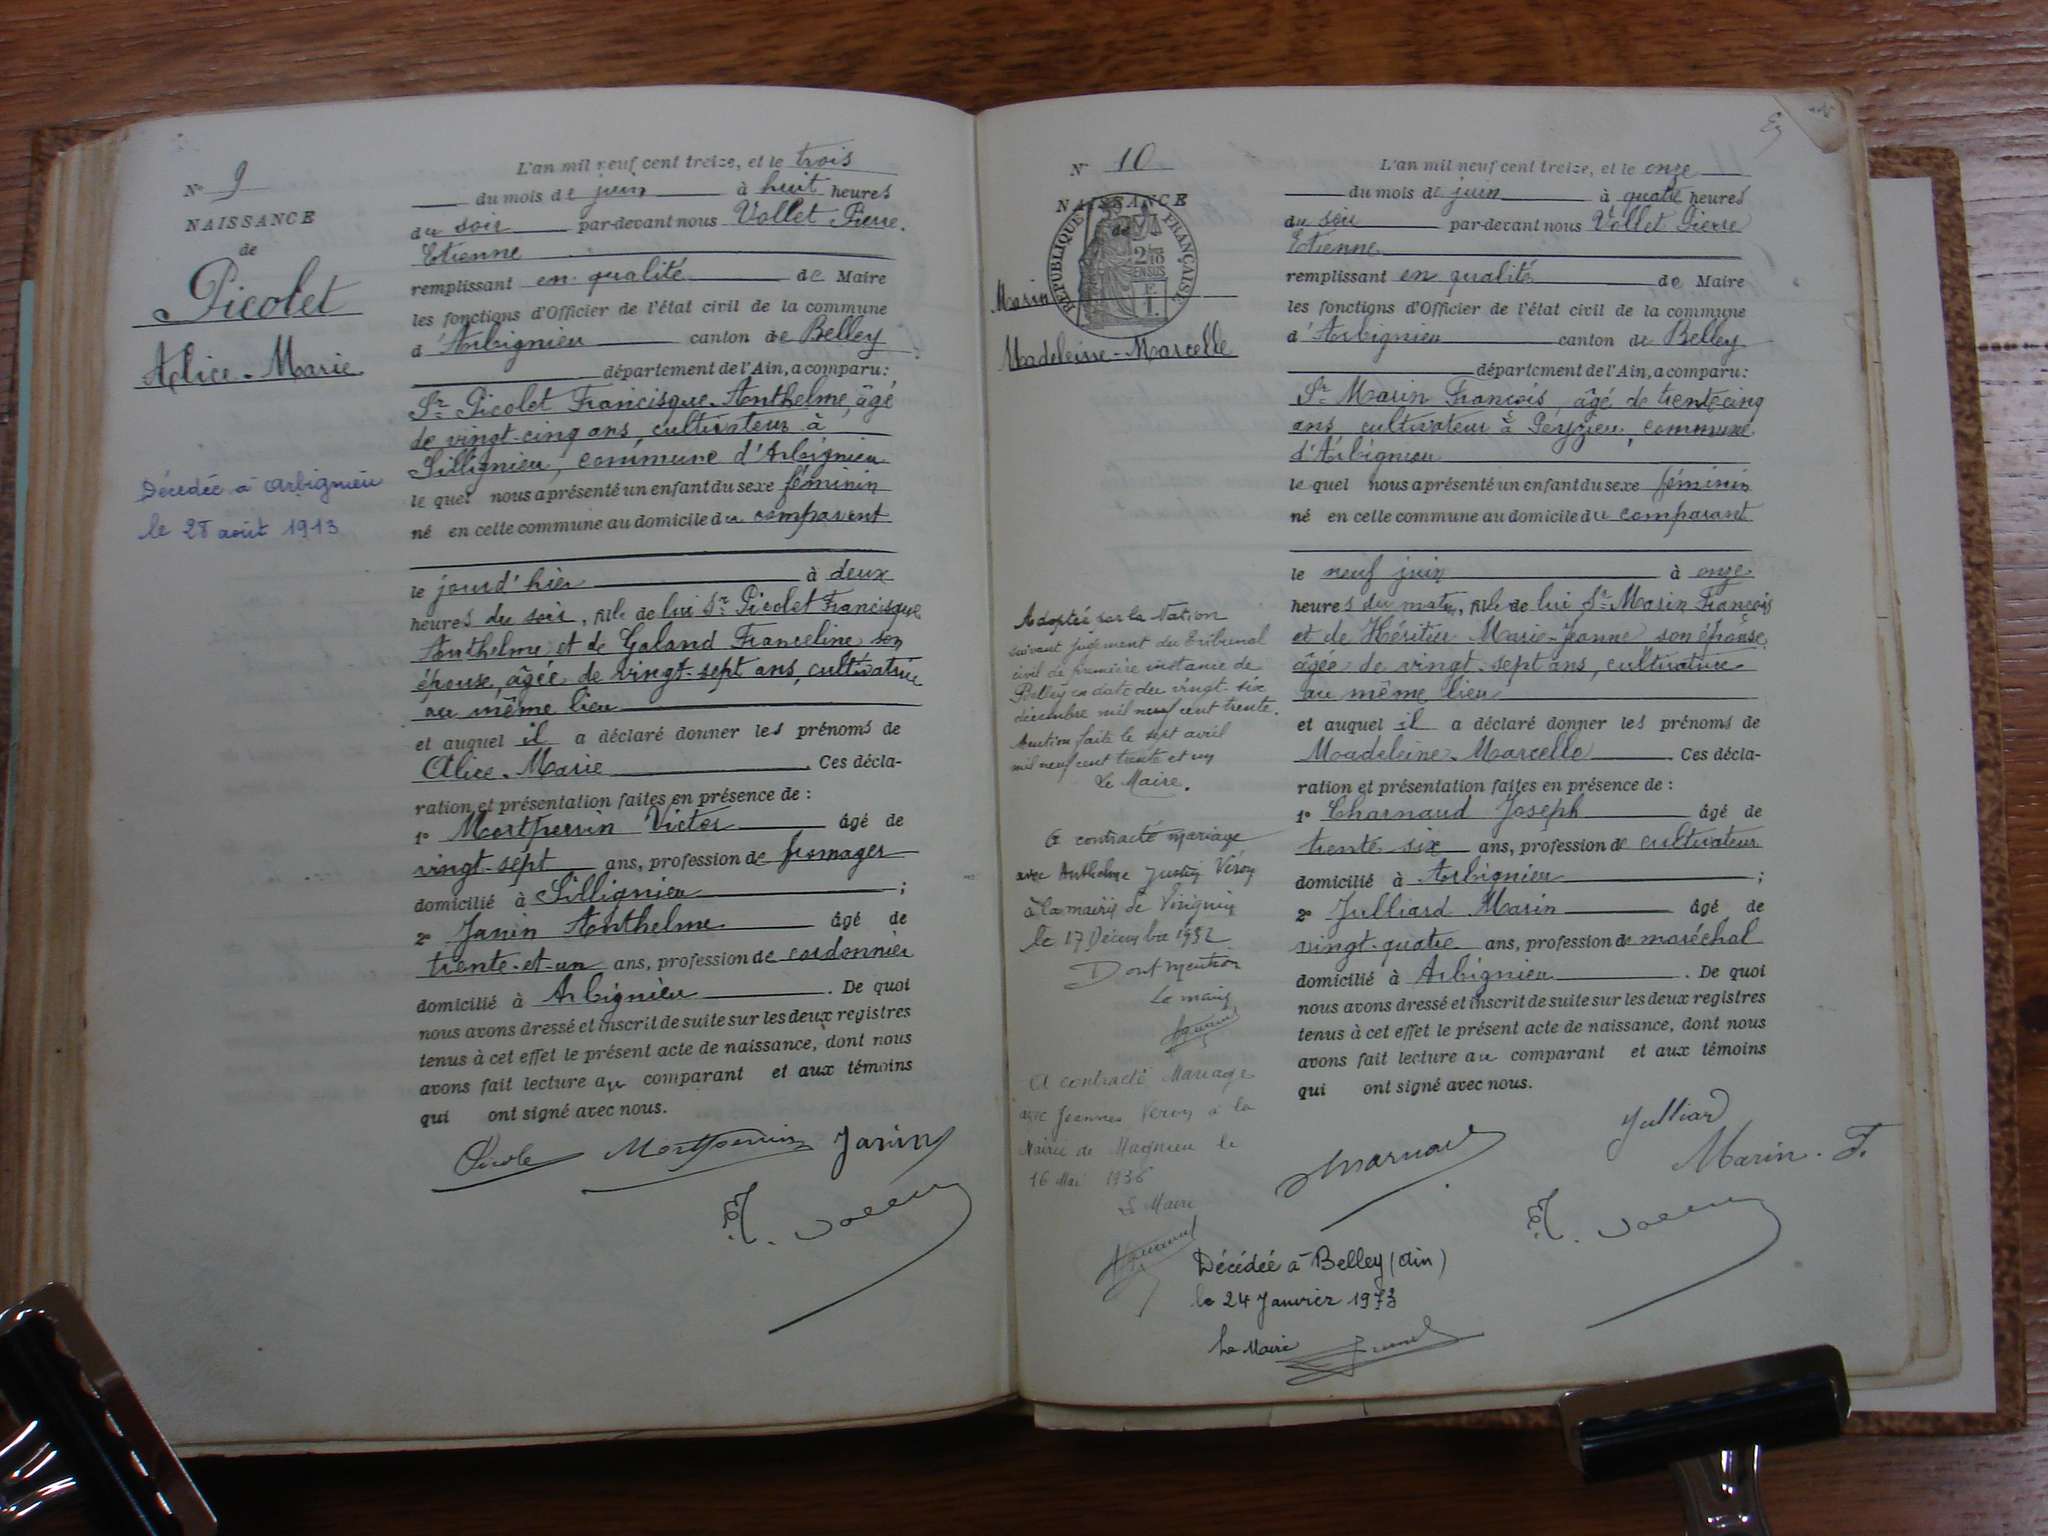 N° 9
NAISSANCE
de
Picolet
Alice-Marie
Décédée à Arbignieu
le 28 août 1913
L'an mil neuf cent treize, et le trois
du mois de juin à huit heures
du soir par-devant nous Vollet Pierre.
Etienne
remplissant en qualité de Maire
les fonctions d'Officier de l'état civil de la commune
d'Arbignieu canton de Belley
département de l'Ain, a comparu:
Sr Picolet Francisque Anthelme, âgé
de vingt-cinq ans, cultivateur à
Sillignieu, commune d'Arbignieu
le quel nous a présenté un enfant du sexe féminin
né en cette commune au domicile du comparant
le jourd'hier à deux
heures du soir, fille de lui Sr Picolet Francisque
Anthelme et de Galand Franceline son
épouse, âgée de vingt-sept ans, cultivatrice
au même lieu
et auquel il a déclaré donner les prénoms de
Alice-Marie. Ces décla-
ration et présentation faites en présence de :
1° Montperrin Victor âgé de
vingt-sept ans, profession de fromager
domicilié à Sillignieu ;
2° Janin Anthelme âgé de
trente-et-un ans, profession de cordonnier
domicilié à Arbignieu. De quoi
nous avons dressé et inscrit de suite sur les deux registres
tenus à cet effet le présent acte de naissance, dont nous
avons fait lecture au comparant et aux témoins
qui ont signé avec nous.
Montperrin Janin
N° 10
NAISSANCE
de
RÉPUBLIQUE FRANÇAISE
Marin
Madeleine-Marcelle
Adoptée par la Nation
suivant jugement du Tribunal
civil de première instance de
Belley en date du vingt-six
décembre mil neuf cent trente.
Mention faite le sept avril
mil neuf cent trente et un
Le Maire.
A contracté mariage
avec Anthelme Justin Véron
à la mairie de Virignin
le 17 Décembre 1932
Dont mention
Le maire
A contracté Mariage
avec Jeannes Veron à la
Mairie de Magnieu le
16 Mai 1936
Le Maire
L'an mil neuf cent treize, et le onze
du mois de juin à quatre heures
du soir par-devant nous Vollet Pierre
Etienne
remplissant en qualité de Maire
les fonctions d'Officier de l'état civil de la commune
d'Arbignieu canton de Belley
département de l'Ain, a comparu:
Sr Marin François, âgé de trente-cinq
ans, cultivateur à Peyzieu, commune
d'Arbignieu
le quel nous a présenté un enfant du sexe féminin
né en cette commune au domicile du comparant
le neuf juin à onze
heures du matin, fille de lui Sr Marin François
et de Héritier Marie-Jeanne son épouse,
âgée de vingt-sept ans, cultivatrice
au même lieu
et auquel il a déclaré donner les prénoms de
Madeleine-Marcelle. Ces décla-
ration et présentation faites en présence de :
1° Charnaud Joseph âgé de
trente six ans, profession de cultivateur
domicilié à Arbignieu ;
2° Julliard Marin âgé de
vingt-quatre ans, profession de maréchal
domicilié à Arbignieu. De quoi
nous avons dressé et inscrit de suite sur les deux registres
tenus à cet effet le présent acte de naissance, dont nous
avons fait lecture au comparant et aux témoins
qui ont signé avec nous.
Julliard
Marin. F.
Décédée à Belley (Ain)
le 24 Janvier 1973
Le Maire